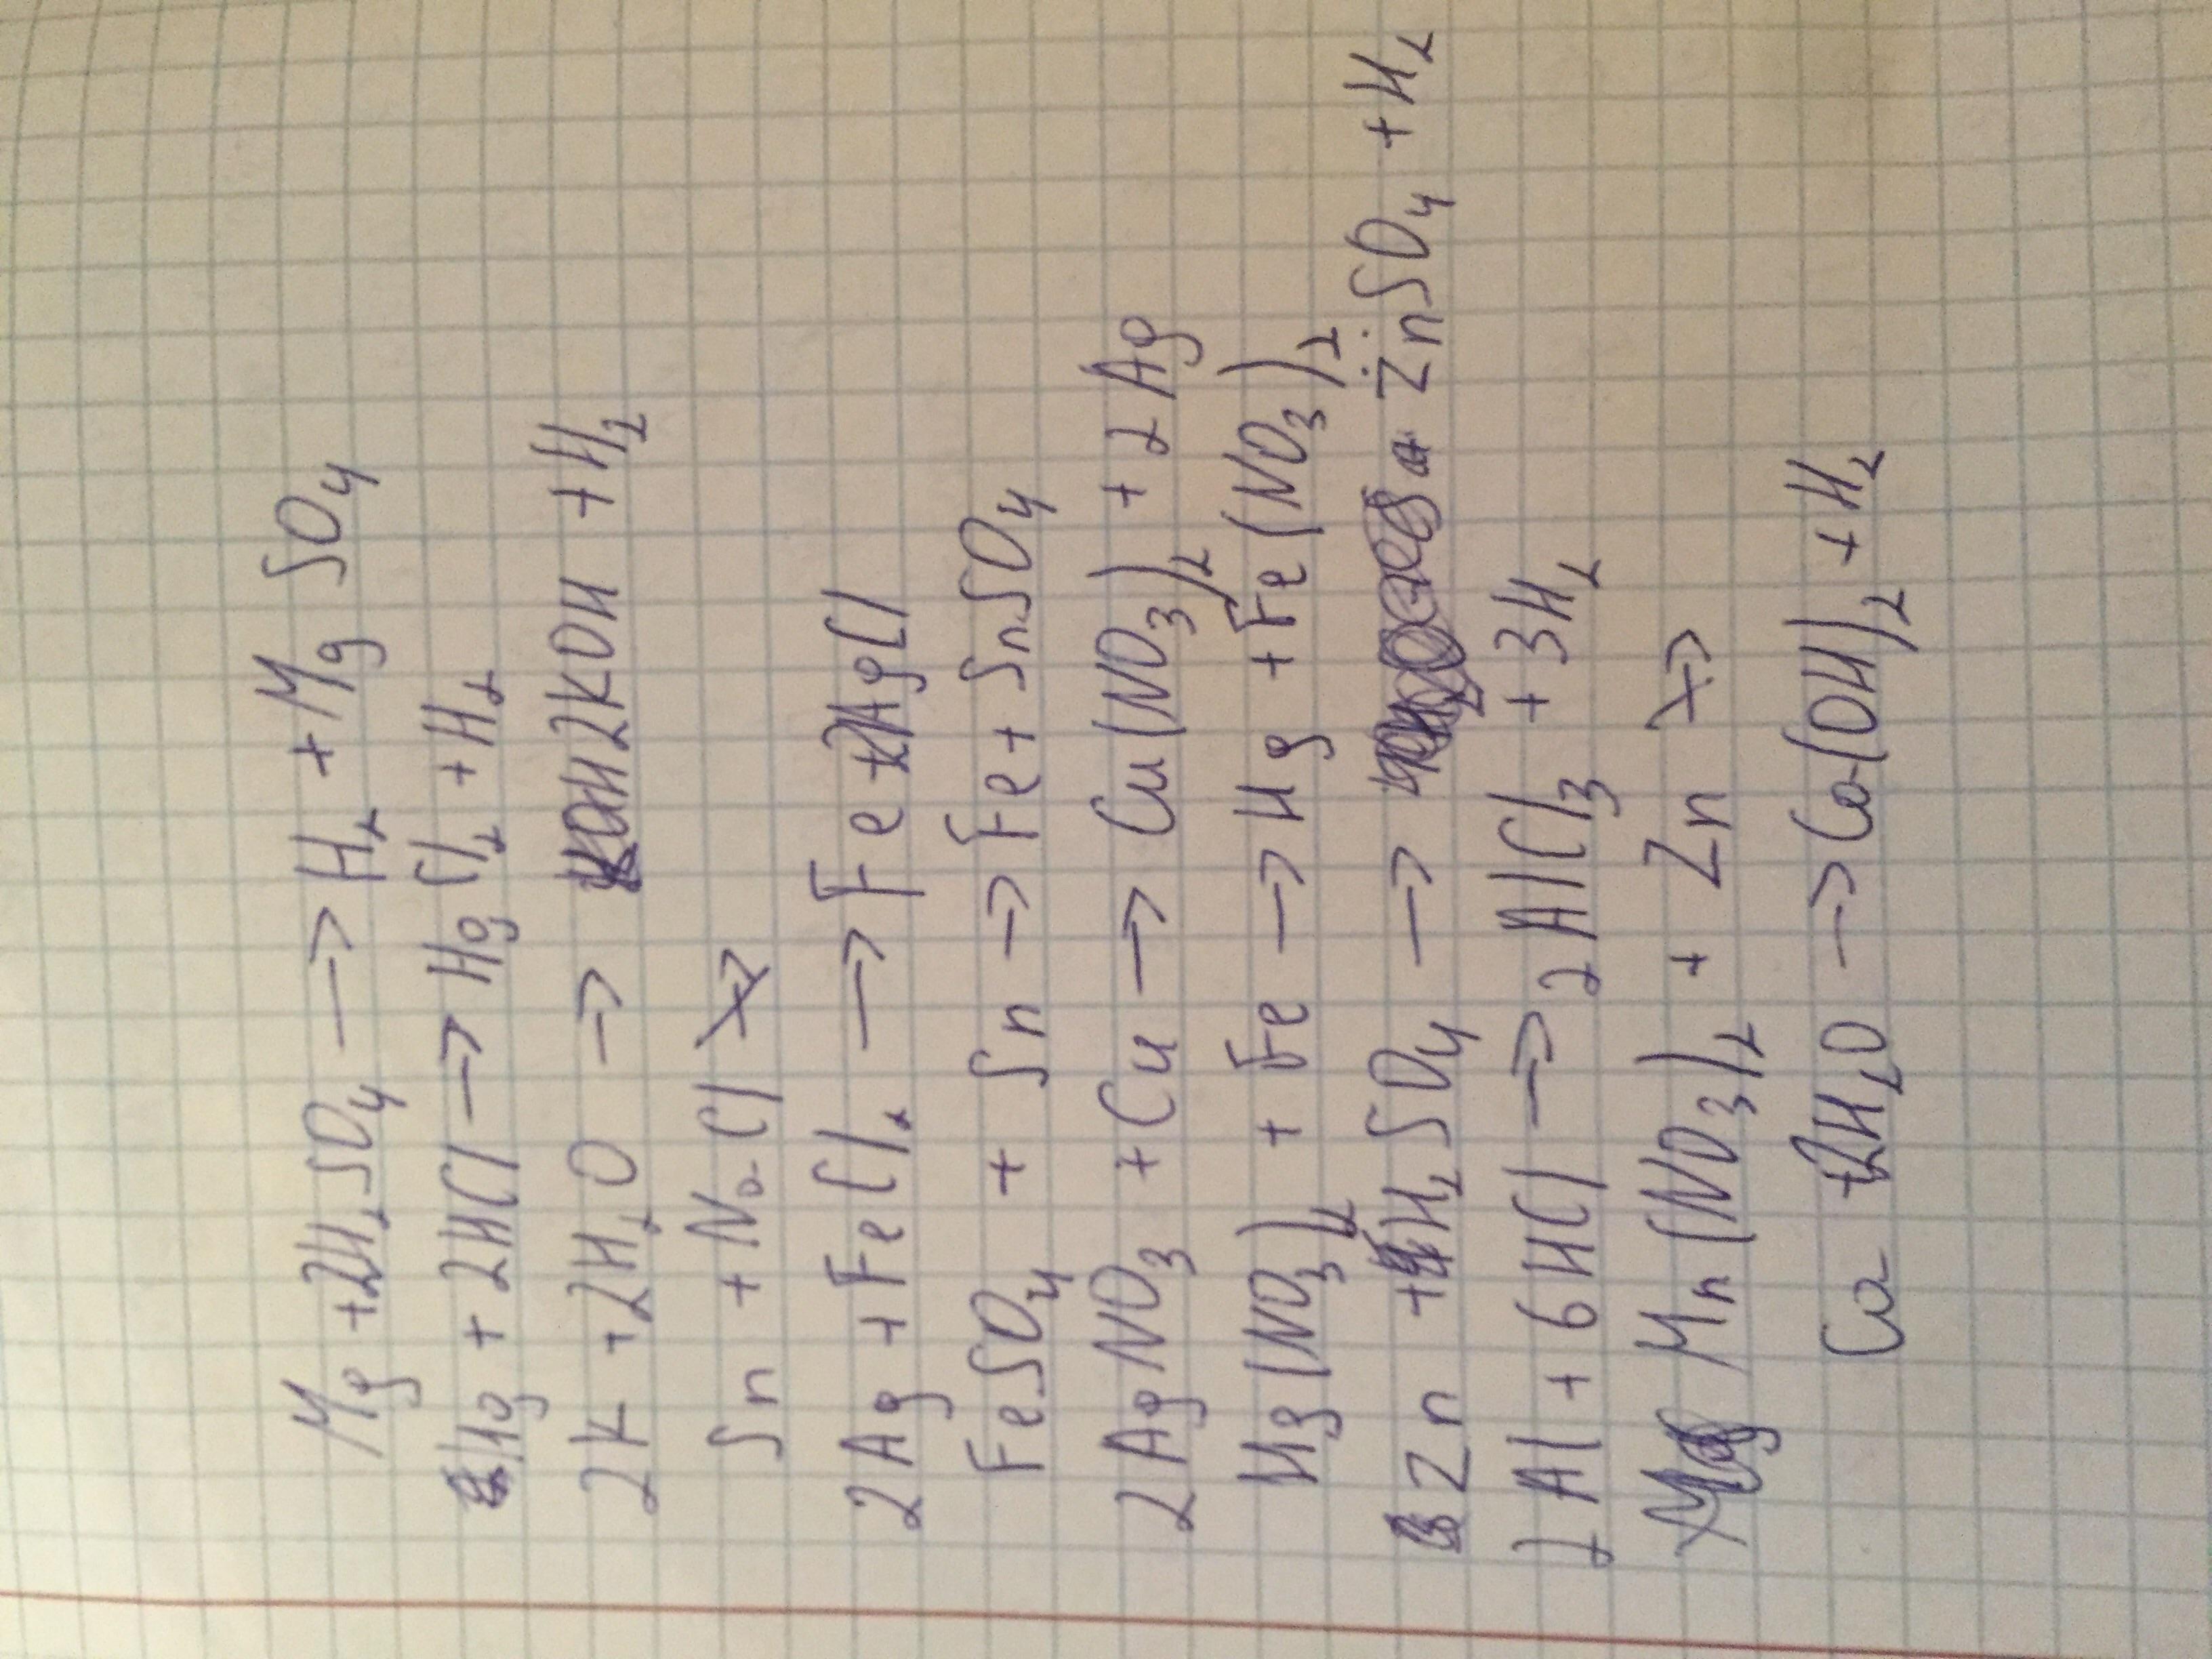 Mg + 2H₂SO₄ → H₂ + MgSO₄
Hg + 2HCl → HgCl₂ + H₂
2K + 2H₂O → 2KOH + H₂
Sn + NaCl ↛
2Ag + FeCl₂ → Fe + 2AgCl
FeSO₄ + Sn → Fe + SnSO₄
2AgNO₃ + Cu → Cu(NO₃)₂ + 2Ag
Hg(NO₃)₂ + Fe → Hg + Fe(NO₃)₂
Zn + H₂SO₄ → ZnSO₄ + H₂
2Al + 6HCl → 2AlCl₃ + 3H₂
Mn(NO₃)₂ + Zn ↛
Ca + 2H₂O → Ca(OH)₂ + H₂